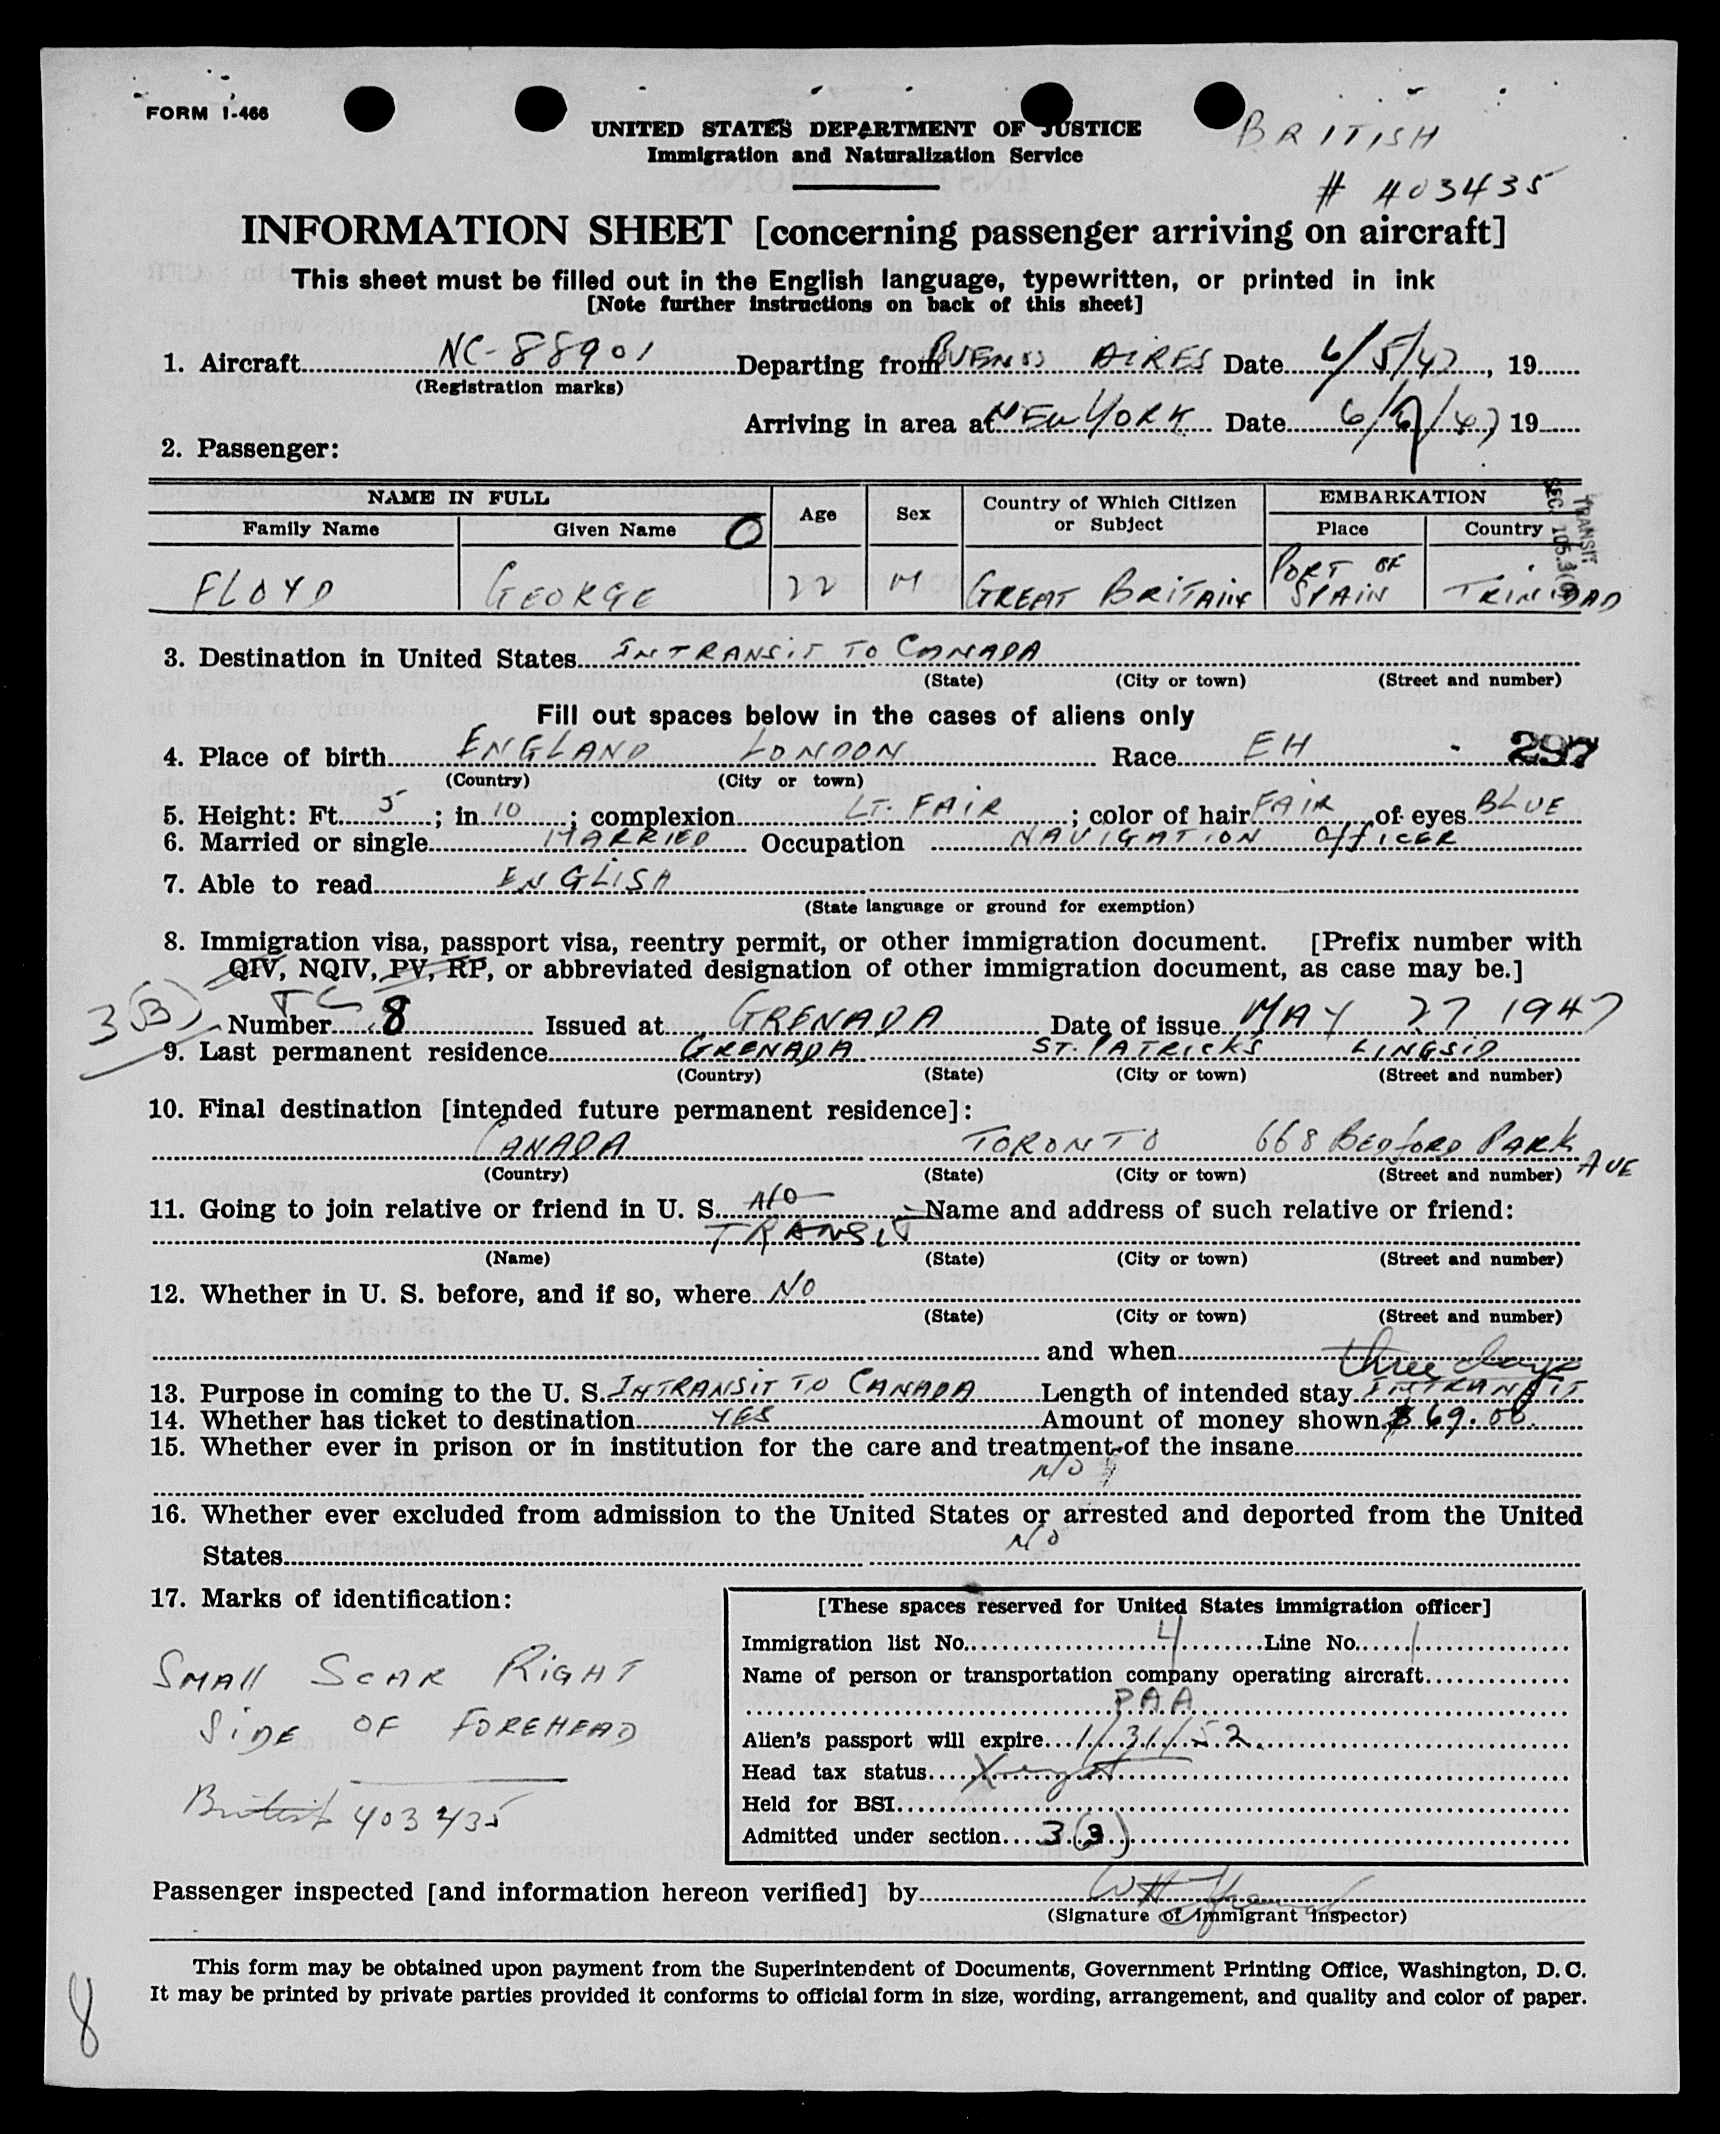 FORM I-466
UNITED STATES DEPARTMENT OF JUSTICE
Immigration and Naturalization Service
BRITISH
# 403435
INFORMATION SHEET [concerning passenger arriving on aircraft]
This sheet must be filled out in the English language, typewritten, or printed in ink
[Note further instructions on back of this sheet]
1. Aircraft NC-88901 Departing from BUENOS AIRES Date 6/5/47, 19
(Registration marks)
Arriving in area at NEW YORK Date 6/6/47 19
2. Passenger:
NAME IN FULL Age Sex Country of Which Citizen or Subject EMBARKATION
Family Name Given Name O Place Country
TRANSIT
SEC. 105.3
FLOYD GEORGE 22 M GREAT BRITAIN PORT OF SPAIN TRINIDAD
3. Destination in United States INTRANSIT TO CANADA
(State) (City or town) (Street and number)
Fill out spaces below in the cases of aliens only
4. Place of birth ENGLAND LONDON Race EH 297
(Country) (City or town)
5. Height: Ft. 5; in. 10; complexion LT. FAIR; color of hair FAIR of eyes BLUE
6. Married or single MARRIED Occupation NAVIGATION OFFICER
7. Able to read ENGLISH
(State language or ground for exemption)
8. Immigration visa, passport visa, reentry permit, or other immigration document. [Prefix number with
QIV, NQIV, PV, RP, or abbreviated designation of other immigration document, as case may be.]
3(3) TC
Number 8 Issued at GRENADA Date of issue MAY 27 1947
9. Last permanent residence GRENADA ST. PATRICKS LINGSID
(Country) (State) (City or town) (Street and number)
10. Final destination [intended future permanent residence]:
CANADA TORONTO 668 BEDFORD PARK AVE
(Country) (State) (City or town) (Street and number)
11. Going to join relative or friend in U. S. NO Name and address of such relative or friend:
TRANSIT
(Name) (State) (City or town) (Street and number)
12. Whether in U. S. before, and if so, where NO
(State) (City or town) (Street and number)
and when
three days
13. Purpose in coming to the U. S. INTRANSIT TO CANADA Length of intended stay INTRANSIT
14. Whether has ticket to destination YES Amount of money shown $ 69.00
15. Whether ever in prison or in institution for the care and treatment of the insane
NO
16. Whether ever excluded from admission to the United States or arrested and deported from the United
States NO
17. Marks of identification:
SMALL SCAR RIGHT
SIDE OF FOREHEAD
British 403435
[These spaces reserved for United States immigration officer]
Immigration list No. 4 Line No. 1
Name of person or transportation company operating aircraft
P.A.A.
Alien's passport will expire 1/31/52.
Head tax status
Held for BSI
Admitted under section 3(3)
Passenger inspected [and information hereon verified] by
(Signature of Immigrant Inspector)
This form may be obtained upon payment from the Superintendent of Documents, Government Printing Office, Washington, D. C.
It may be printed by private parties provided it conforms to official form in size, wording, arrangement, and quality and color of paper.
8